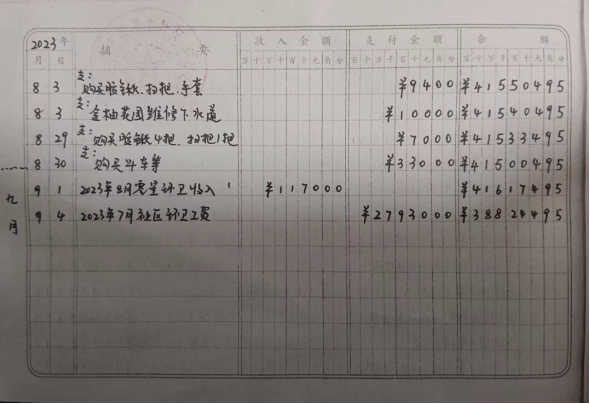 2023年 摘 要 收入金额 支付金额 余 额
月 日 百十万千百十元角分 百十万千百十元角分 百十万千百十元角分
8 3 支: 购买 铁 、扫把、手套 ¥9400 ¥41550495
8 3 支: 金柚花园维修下水道 ¥10000 ¥41540495
8 29 支: 购买 铁 4把、扫把1把 ¥7000 ¥41533495
8 30 支: 购买斗车等 ¥33000 ¥41500495
九月
9 1 2023年8月零星环卫收入 ¥117000 ¥41617495
9 4 2023年7月社区环卫工资 ¥2793000 ¥38824495